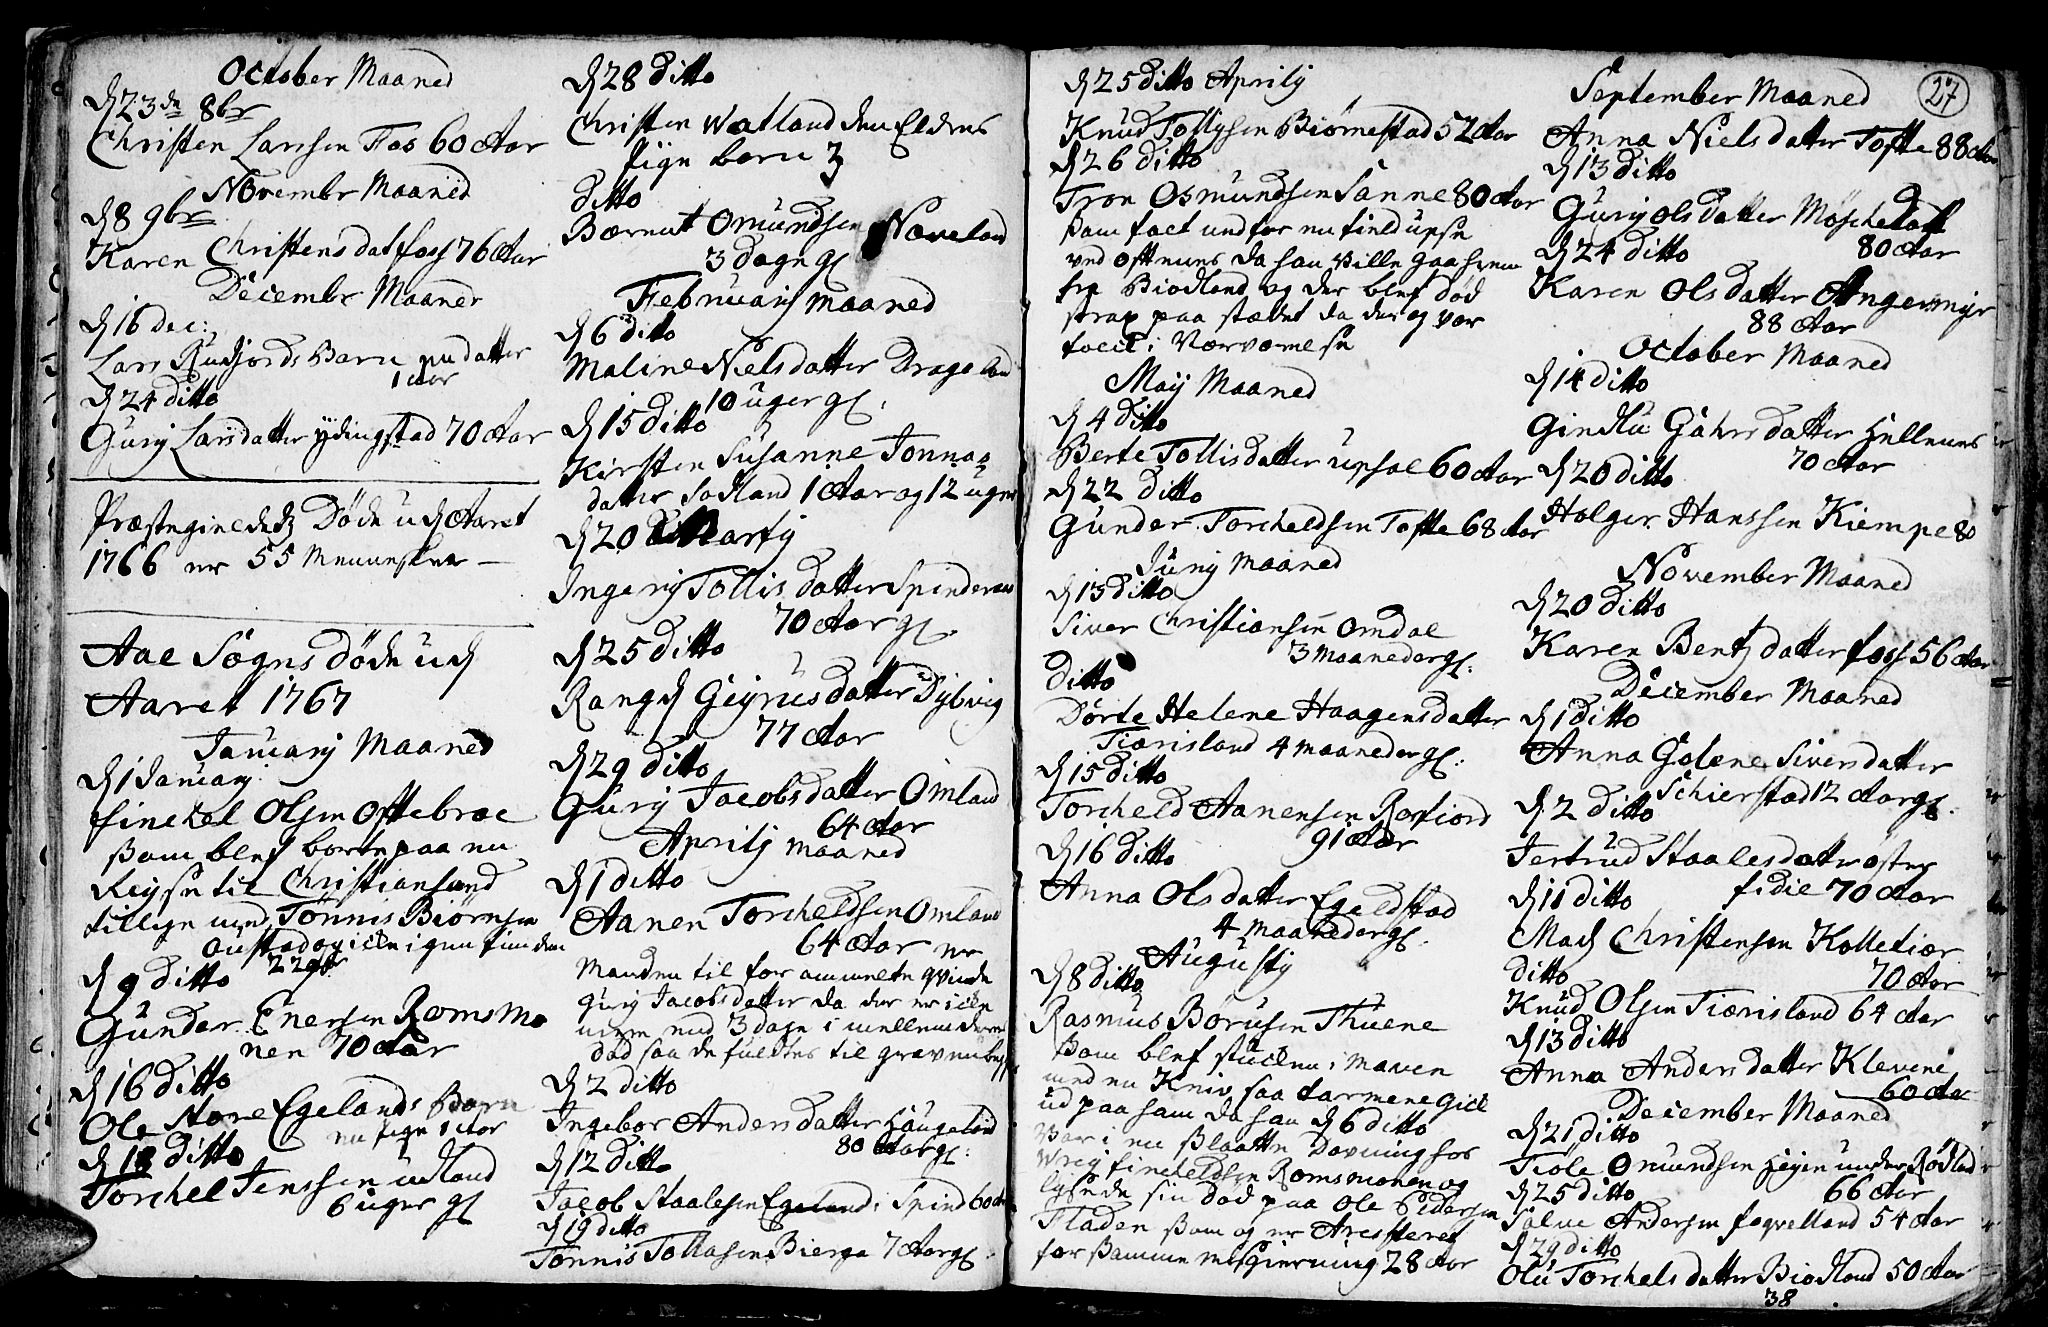 October Maaned
d 23de 8br
Christen Larssen Fos 60 Aar
Novembr Maaned
d 8 9br
Karen Christensdat foss 76 Aar
Decembr Maaned
d 16 dec:
Lars Rudjords Barn en datter
1 Aar
d 24 ditto
Gurj Larsdatter ydingstad 70 Aar
Præstegieldetz Døde udj Aaret
1766 er 55 Mennesker —
Aae Sogns døde udj
Aaret 1767
Januarj Maaned
d 1 Januarj
finckel Olsen Oftebroe
som blef borte paa en
Reyse til Christiansand
tillige med Tønnis Biørnsen
Øustad og icke igien funden
22 9br
d 9 ditto
Gunder Enersen Romsmo
nen 70 Aar
d 16 ditto
Ole Store Egelands Barn
en pige 1 Aar
d 18 ditto
Torchel Jenssen udland
6 uger gl
d 28 ditto
Christen Watland den Eldres
pige barn 3
ditto
Bærnt Omundsen Næveland
3 dage gl
Februarij maaned
d 6 dito
Maline Nielsdatter Drageland
10 uger gl.
d 15 ditto
Kirsten Susanne Tonnas
datter Sodland 1 Aar og 12 uger
d 20 Martj
Ingerij Tollisdatter Spinderen
70 Aar gl.
d 25 ditto
Rangd Geyrusdatter Dybvig
77 Aar
d 29 ditto
Gurj Jacobsdatter Omland
64 Aar
Aprilj maaned
d 1 ditto
Aanen Torcheldsen Omland
64 Aar er
Manden til for ommelte qvinde
Gurj Jacobsdatter da der er icke
mere end 3 dage i mellem deres
død saa de fuldtes til graven
d 2 ditto
Ingebor Andersdatter Haugeland
80 Aar gl:
d 12 ditto
Jacob Staalesen Egeland i Spind 60 Aar
d 19 ditto
Tønnis Tollasen Bierga 7 Aar gl.
d 25 ditto Aprilj
Knud Tollgsen Biørnestad 52 Aar
d 26 ditto
Tron Osmundsen Sanne 80 Aar
som foel undfor en fieldupse
ved Oftenes da han ville gaa hiem
fra Biodland og der blef død
strax paa stædet da der og var
foell i
May Maaned
d 4 ditto
Berte Tollisdatter upsal 60 Aar
d 22 ditto
Gunder Torcheldsen Tofte 68 Aar
Junj Maaned
d 13 ditto
Siver Christiansen Omdal
3 Maaneder gl:
ditto
Dorte Helene Haagensdatter
Tiørisland 4 maaneder gl:
d 15 ditto
Torcheld Aanensen Rosfiord
91 Aar
d 16 ditto
Anna Olsdatter Egeldstad
4 Maaneder gl.
Augustj
d 8 ditto
Rasmus Børusen Thuene
som blef stucken i Maven
med en Kniv saa tarmene gick
ud paa ham da han d 6 ditto
var i en Slaatte Dovning hos
Wrej finckeldsen Romsmonen og
lysede sin død paa Ole Pedersen
Fladen som og er Arresteret
for samme misgierning 28 Aar
27
September Maaned
Anna Nielsdatter Tofte 88 Aar
d 13 ditto
Gurij Olsdatter Møscheland
80 Aar
d 24 ditto
Karen Olsdatter Angermyr
88 Aar
October Maaned
d 14 ditto
Giedlu Gahrsdatter Hellenes
70 Aar
d 20 ditto
Holger Hanssen Kiempe 80
November Maaned
d 20 ditto
Karen Bentzdatter foss 56 Aar
December Maaned
d 1 ditto
Anna Golene Siversdatter
Schierstad 12 Aar gl.
d 2 ditto
Jertrud Staalesdatter øster
fidie 70 Aar
d 11 ditto
Mads Christensen Kolletiør
70 Aar
ditto
Knud Olsen Tiørisland 64 Aar
d 13 ditto
Anna Andersdatter Klevene
60 Aar
December Maaned
d 21 ditto
Tiole Omundsen Heyen under Rødland
66 Aar
d 25 ditto
Salve Andersen fogvelland 54 Aar
d 29 ditto
Olu Torchelsdatter Biodland 50 Aar
38